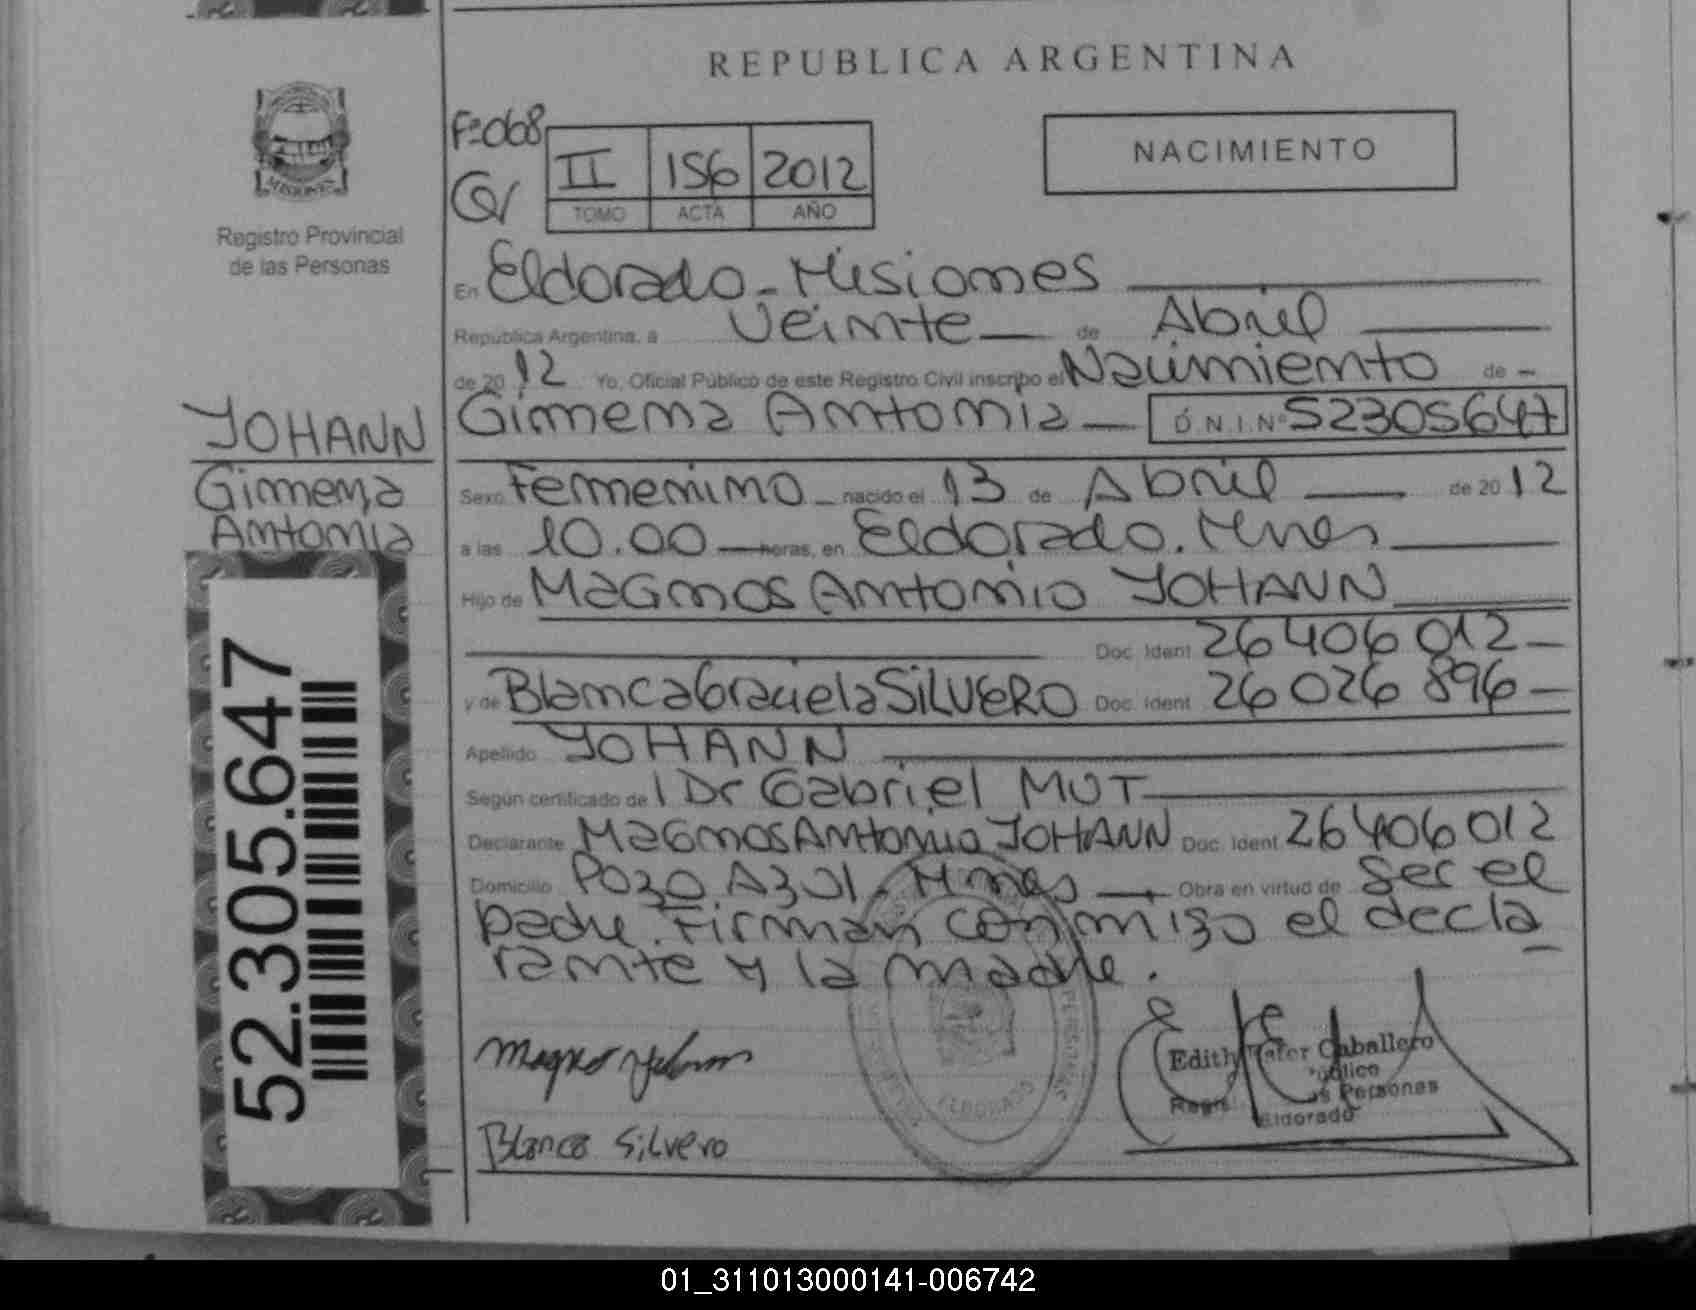 REPUBLICA ARGENTINA
MISIONES
Registro Provincial
de las Personas
Fº068
II 156 2012
TOMO ACTA AÑO
NACIMIENTO
En Eldorado - Misiones
República Argentina, a Veinte de Abril
de 2012 Yo, Oficial Público de este Registro Civil inscribo el Nacimiento de
Gimena Antonia D.N.I.Nº 52305647
JOHANN
Gimena
Antonia
Sexo Femenino nacido el 13 de Abril de 2012
a las 10.00 horas, en Eldorado. Mnes
Hijo de Magnos Antonio JOHANN
Doc. Ident. 26 406 012
y de Blanca Graciela SILVERO Doc. Ident. 26 026 896
Apellido JOHANN
Según certificado de Dr Gabriel MUT
Declarante Magnos Antonio JOHANN Doc. Ident. 26 406 012
Domicilio Pozo Azul - Mnes Obra en virtud de Ser el
padre. Firman conmigo el decla
rante y la madre.
52.305.647
Blanca Silvero
ELDORADO
Edith Caballero
Personas
Eldorado
01_311013000141-006742